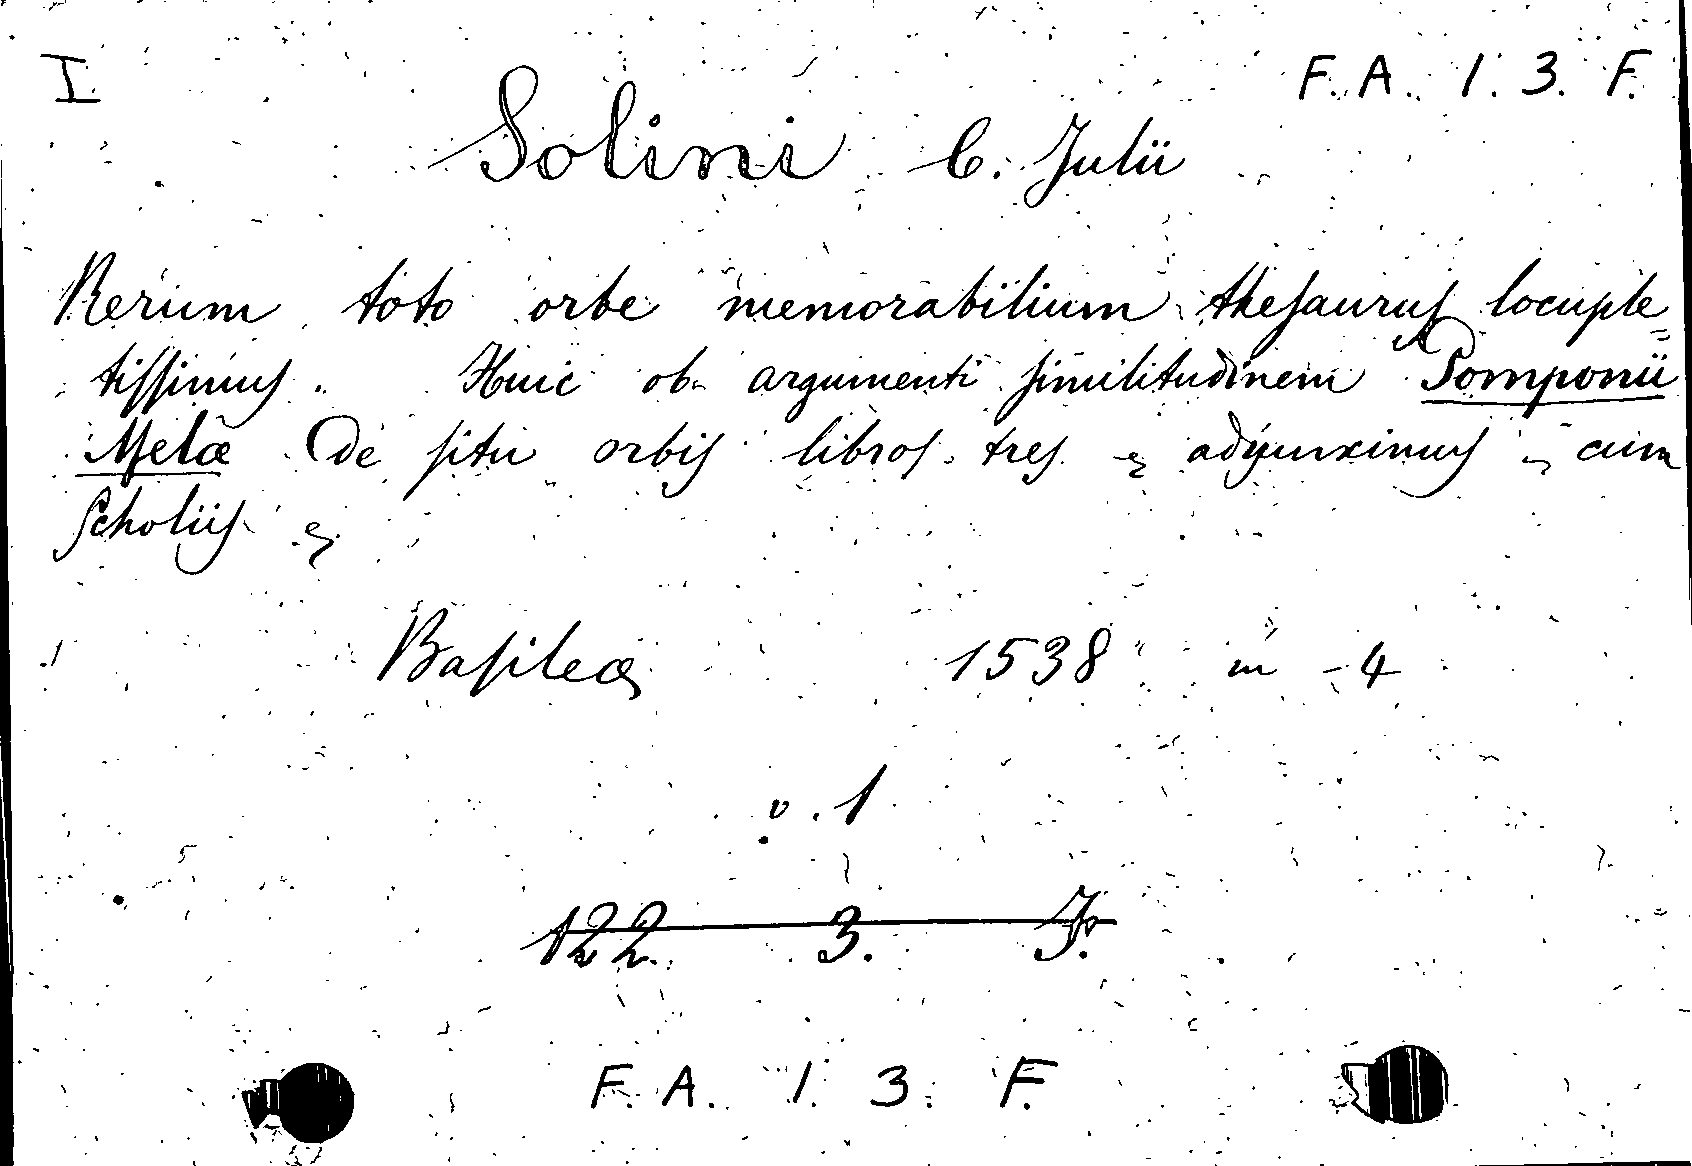 I
F. A. 1. 3. F.
Solini C. Julii
Rerum toto orbe memorabilium thesaurus locuple=
tissimus. Huic ob argumenti similitudinem Pomponii
Melæ De situ orbis libros tres adjunximus cum
Scholiis
Basileæ 1538 in -4
v. 1
122. 3. J.
F. A. 1. 3. F.